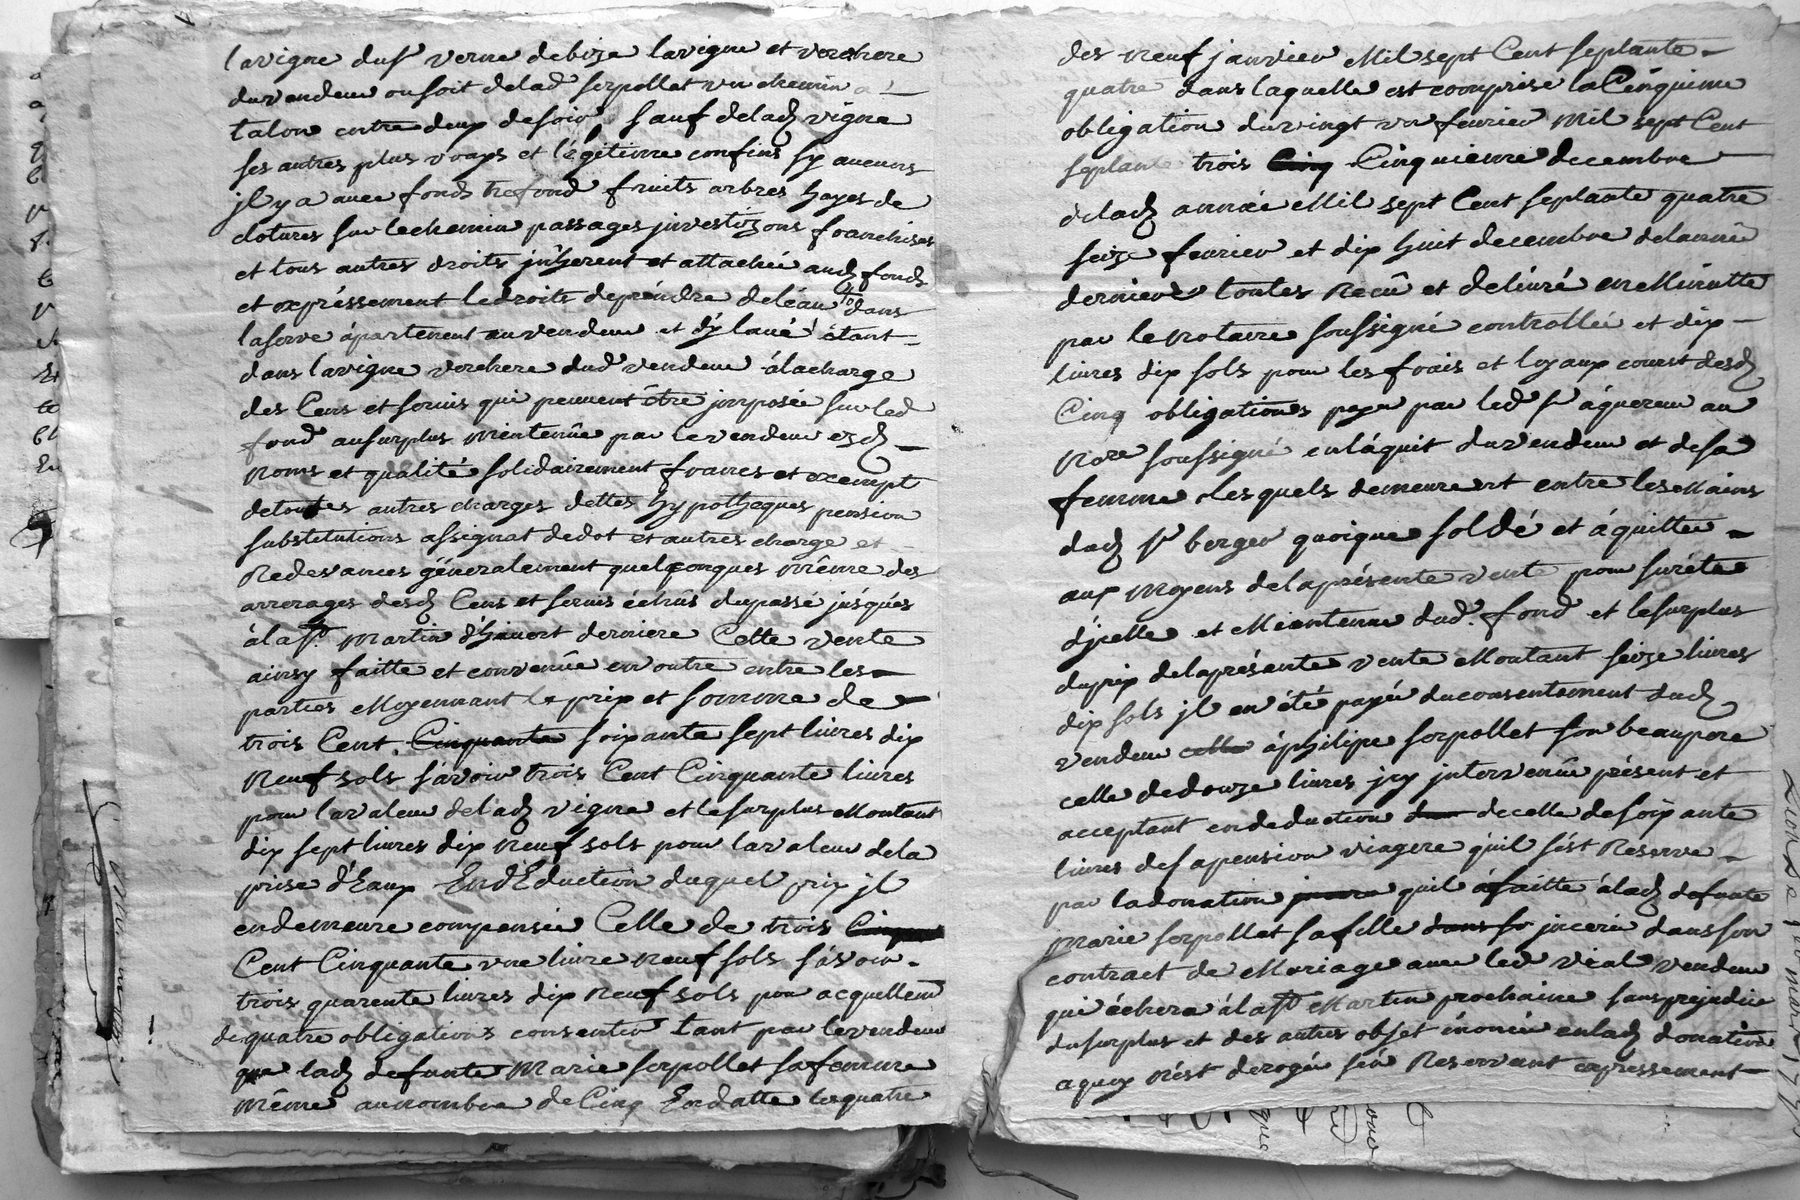 lavigne dus.r verne debize lavigne et verchere
duvendeur ousoit delad serpollet un chemin a
talon entre deux desoir sauf deladt vigne
ses autres plus vrays et légitime confins sy aucuns
jl y a avec fonds trefond fruits arbres hayes de
clotures sur lechemin passages jnvestizons franchises
et tous autres droits jnhérent et attachée audt fonds
et expréssement ledroits deprendre deléau dans
laserve ápartenent auvendeur et dy lavé étant
dans lavigne verchere dud vendeur álacharge
des Cens et servis qui peuvent être jmposée surled
fond ausurplus mintenüe par levendeur esdt
noms et qualité solidairement franes et exempt
detoutes autres charges dettes hypotheques pension
substitutions assignat dedot et autres charge et
Redevances géneralement quelconques même des
arrerages desdt Cens et servis échüs dupassé jusqués
álast. martin d'hivert derniere Cette vente
ainsy faitte et convenüe en outre entre les
parties Moyennant le prix et somme de
trois Cent Cinquante soixante sept livres dix
neuf sols sávoir trois Cent Cinquante livres
pour lavaleur deladt vigne et lesurplus Montant
dix sept livres dix neuf sols pour lavaleur dela
prise d'Eaux En dEduction duquel prix jl
endemeure compensée Celle de trois
Cent Cinquante une livre neuf sols sávoir
trois quarente livres dix neuf sols pour acquellem
de quatre obligations consentie tant par levendeur
que ladt defunte Marie serpollet safemme
même aunombre de Cinq Endatte les quatre
des neuf janvier Mil sept Cent septante
quatre dans laquelle est comprise la Cinquieme
obligation duvingt un fevrier mil sept Cent
septante trois Cinq Cinquieme decembre
deladt année Mil sept Cent septante quatre
seize fevrier et dix huit decembre delanneé
derniere toutes Recû et delivré enMinutte
par le notaire soussigné controllée et dix
livres dix sols pour les frais et loyaux couust desdt
Cinq obligations payé par led sr áquereur au
nore soussigné enláquit duvendeur et desa
femme Lesquels demeurent entre lesMains
dudt sr berger quoique soldé et áquittée
aux moyens delaprésente vente pour surétée
djcelle et Maintenue dud. fond et lesurplus
duprix delaprésente vente Montant seize livres
dix sols jl en été payée duconsentement dudt
vendeur celle áphilipe serpollet son beaupere
celle dedouze livres jcy jntervenüe présent et
acceptant endeduction decelle desoixante
livres desapension viagere quil sést Reservé
par ladonation quil áfaitte áladt defunte
Marie serpollet safille dans so jnceré dansson
contract de Mariage avec led vial vendeur
qui échera álast Martin prochaine sansprejudice
dusurplus et des autres objet énoncée enladt donation
aquoy nést derogée sén Reservant expressement